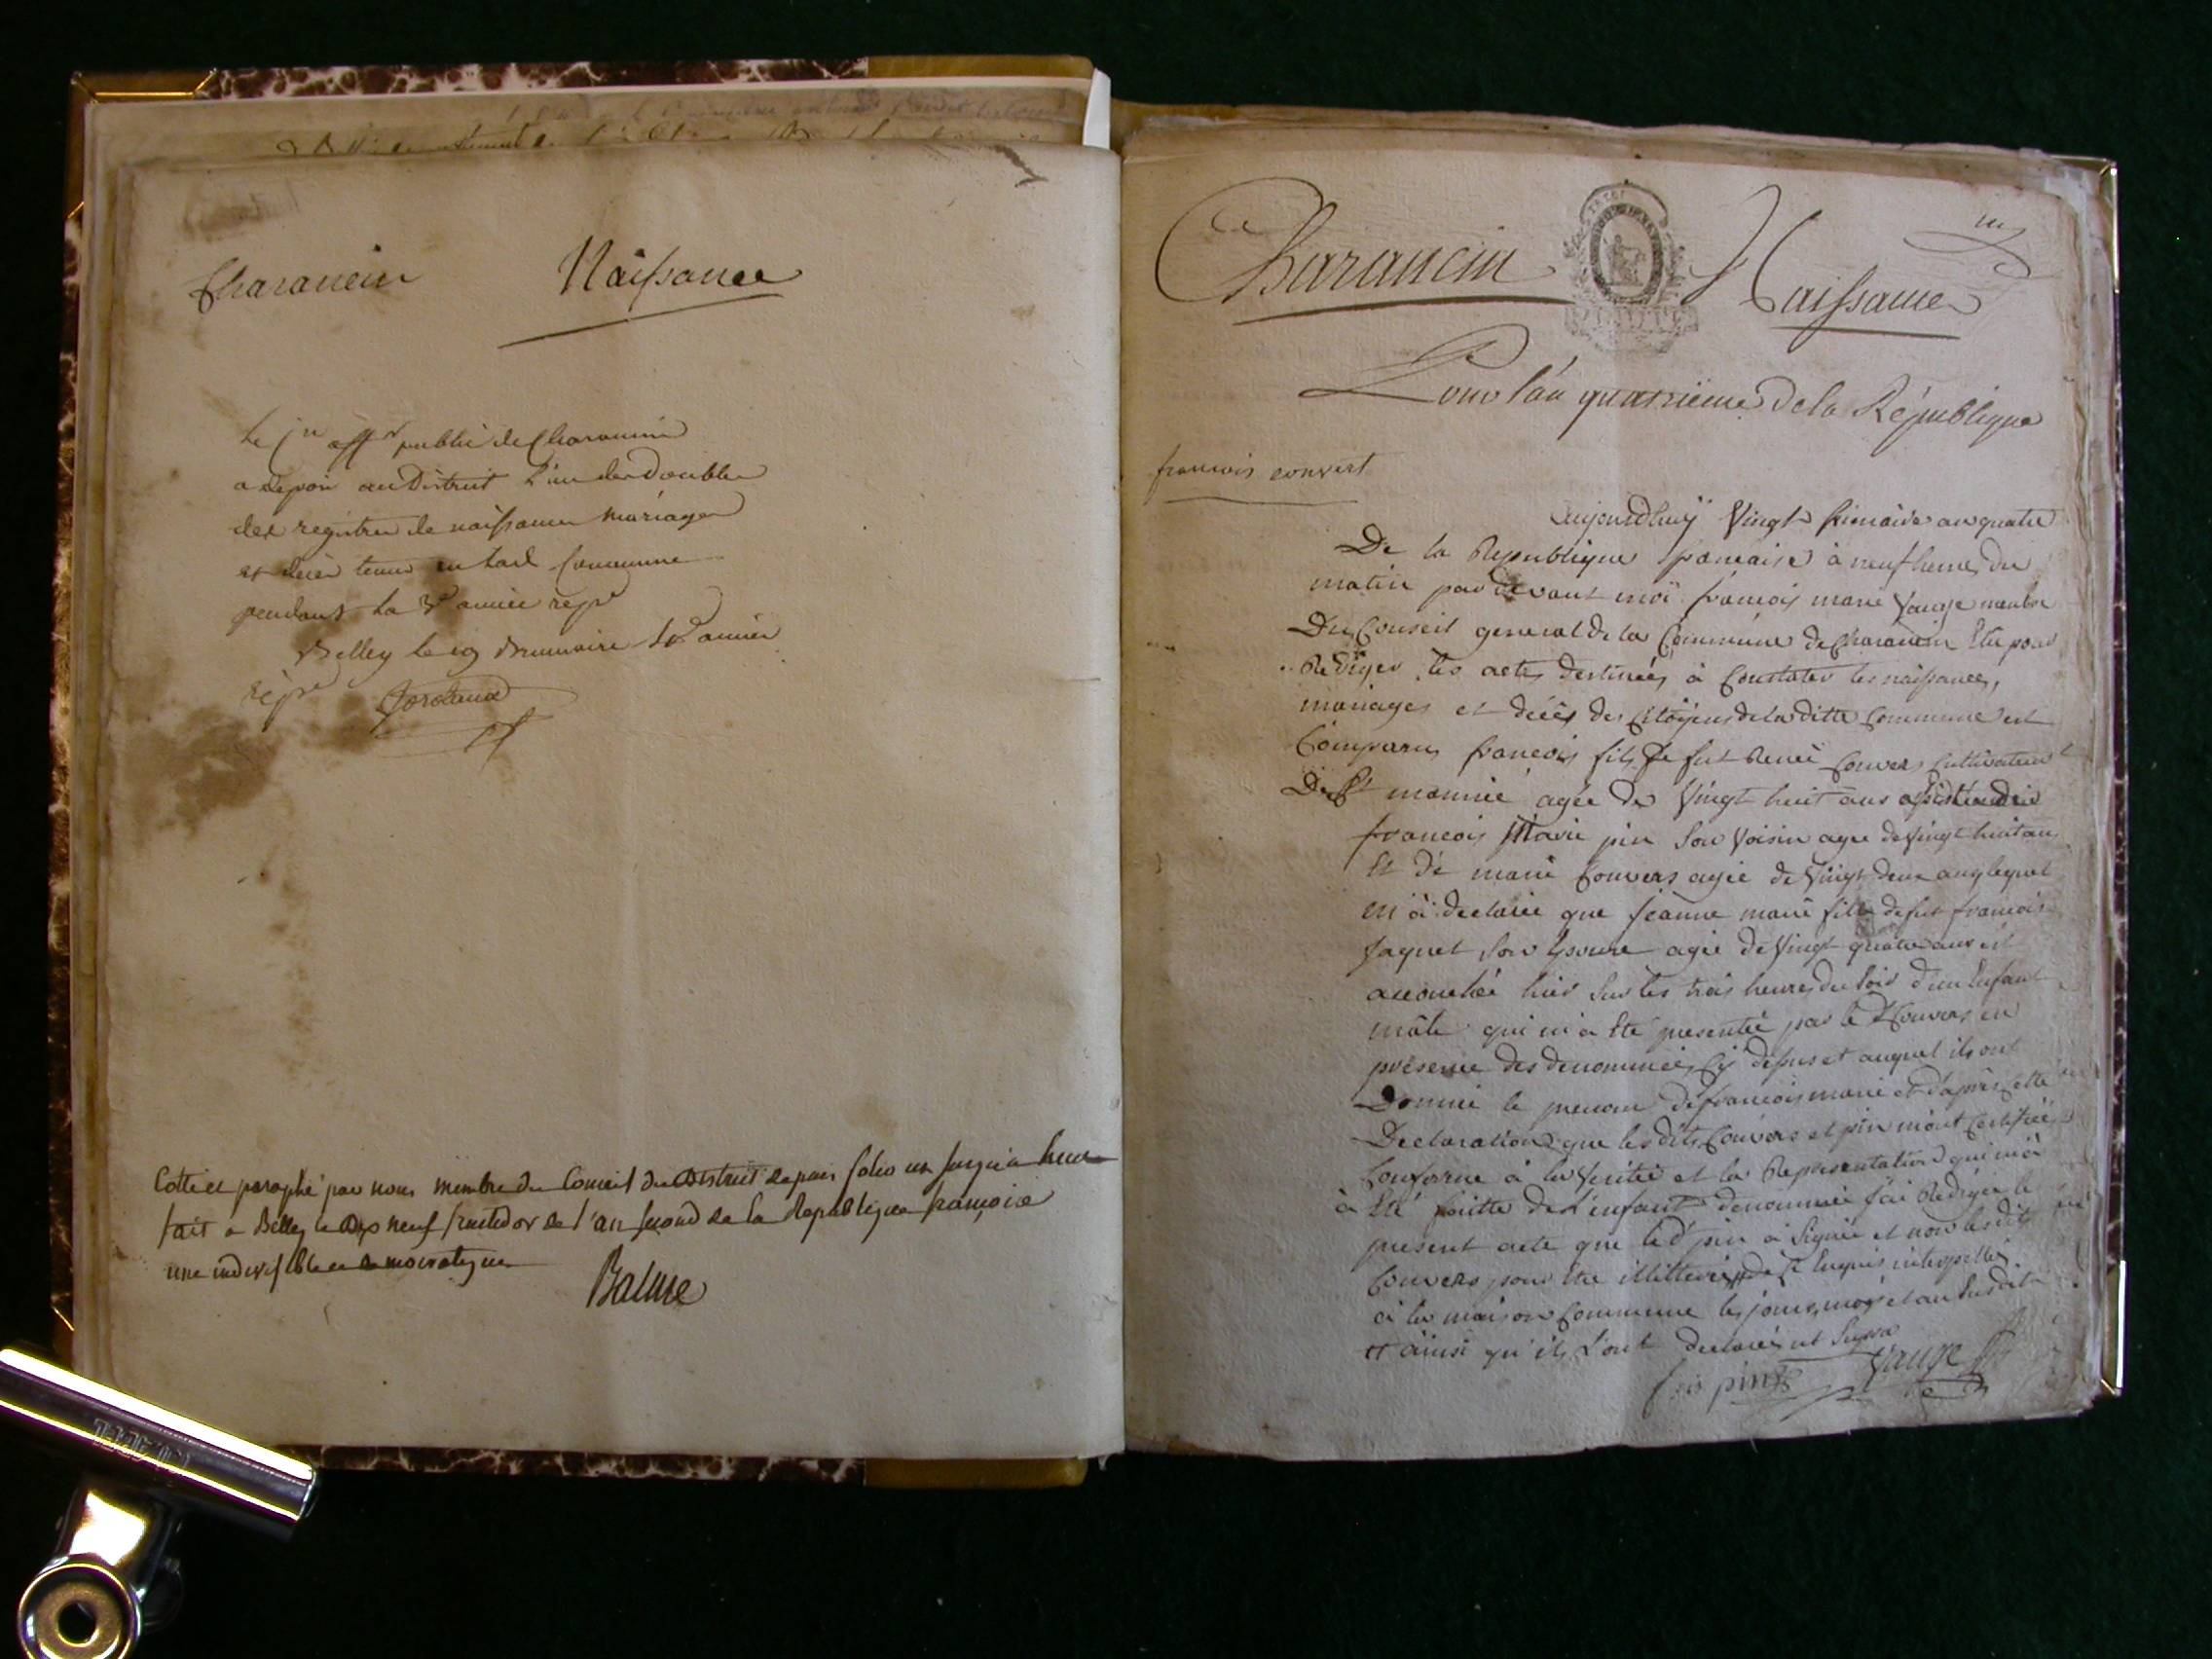 Charancin Naissance
le offr public de Charancin
a deposé au District l'un des Doubles
des registres de naissances mariages
et décès tenus en lad. Commune
pendant la 3e année repne
Belley le 19 Brumaire 4e année
repne
Cotté et paraphé par nous membre du Conseil du District depuis folio un jusqu'a
fait a Belley le dix neuf fructidor de l'an second de la Republique françoise
une indivisible et democratique
Balme
Charancin Naissance
Pour l'an quatrieme de la République
francois convert
aujourdhuÿ Vingt frimaire an quatre
De la Republique francaise à neuf heures du
matin par devant moi francois marie Vauge membre
Du Conseil general de la Commune de Charancin Elu pour
Rediger les actes destinées à Constater les naissances,
mariages et décès des Citoÿens de la ditte Commune est
Comparus francois fils de fut René Convers Cultivateur
agée de Vingt huit ans assisté de
francois Marie pin son Voisin agée de Vingt huit ans
Et de marie Convers agée de Vingt deux ans lequel
m'à declarée que jeanne marie fille de fut francois
jaquet son Epouse agée de Vingt quatre ans est
accouchée hier sur les trois heures du soir d'un Enfant
mâle qui m'a Eté presentée par le d Convers en
présence des denommées Cÿ dessus et auquel ils ont
Donnée le prenom de francois marie et d'après cette
Declaration que les dits Convers et pin m'ont Certifiée
Conforme à la Veritée et la Representation qui m'à
à Eté faitte de L'enfant denommée j'ai Redigée le
present acte que le d pin à Signée et non les dits
Convers pour Etre illitterés de ce Enquis interpellés
à la maison Commune les jours, mois et an susdit
et ainsi qu'ils L'ont declarés ut supra
fois pin Vauge